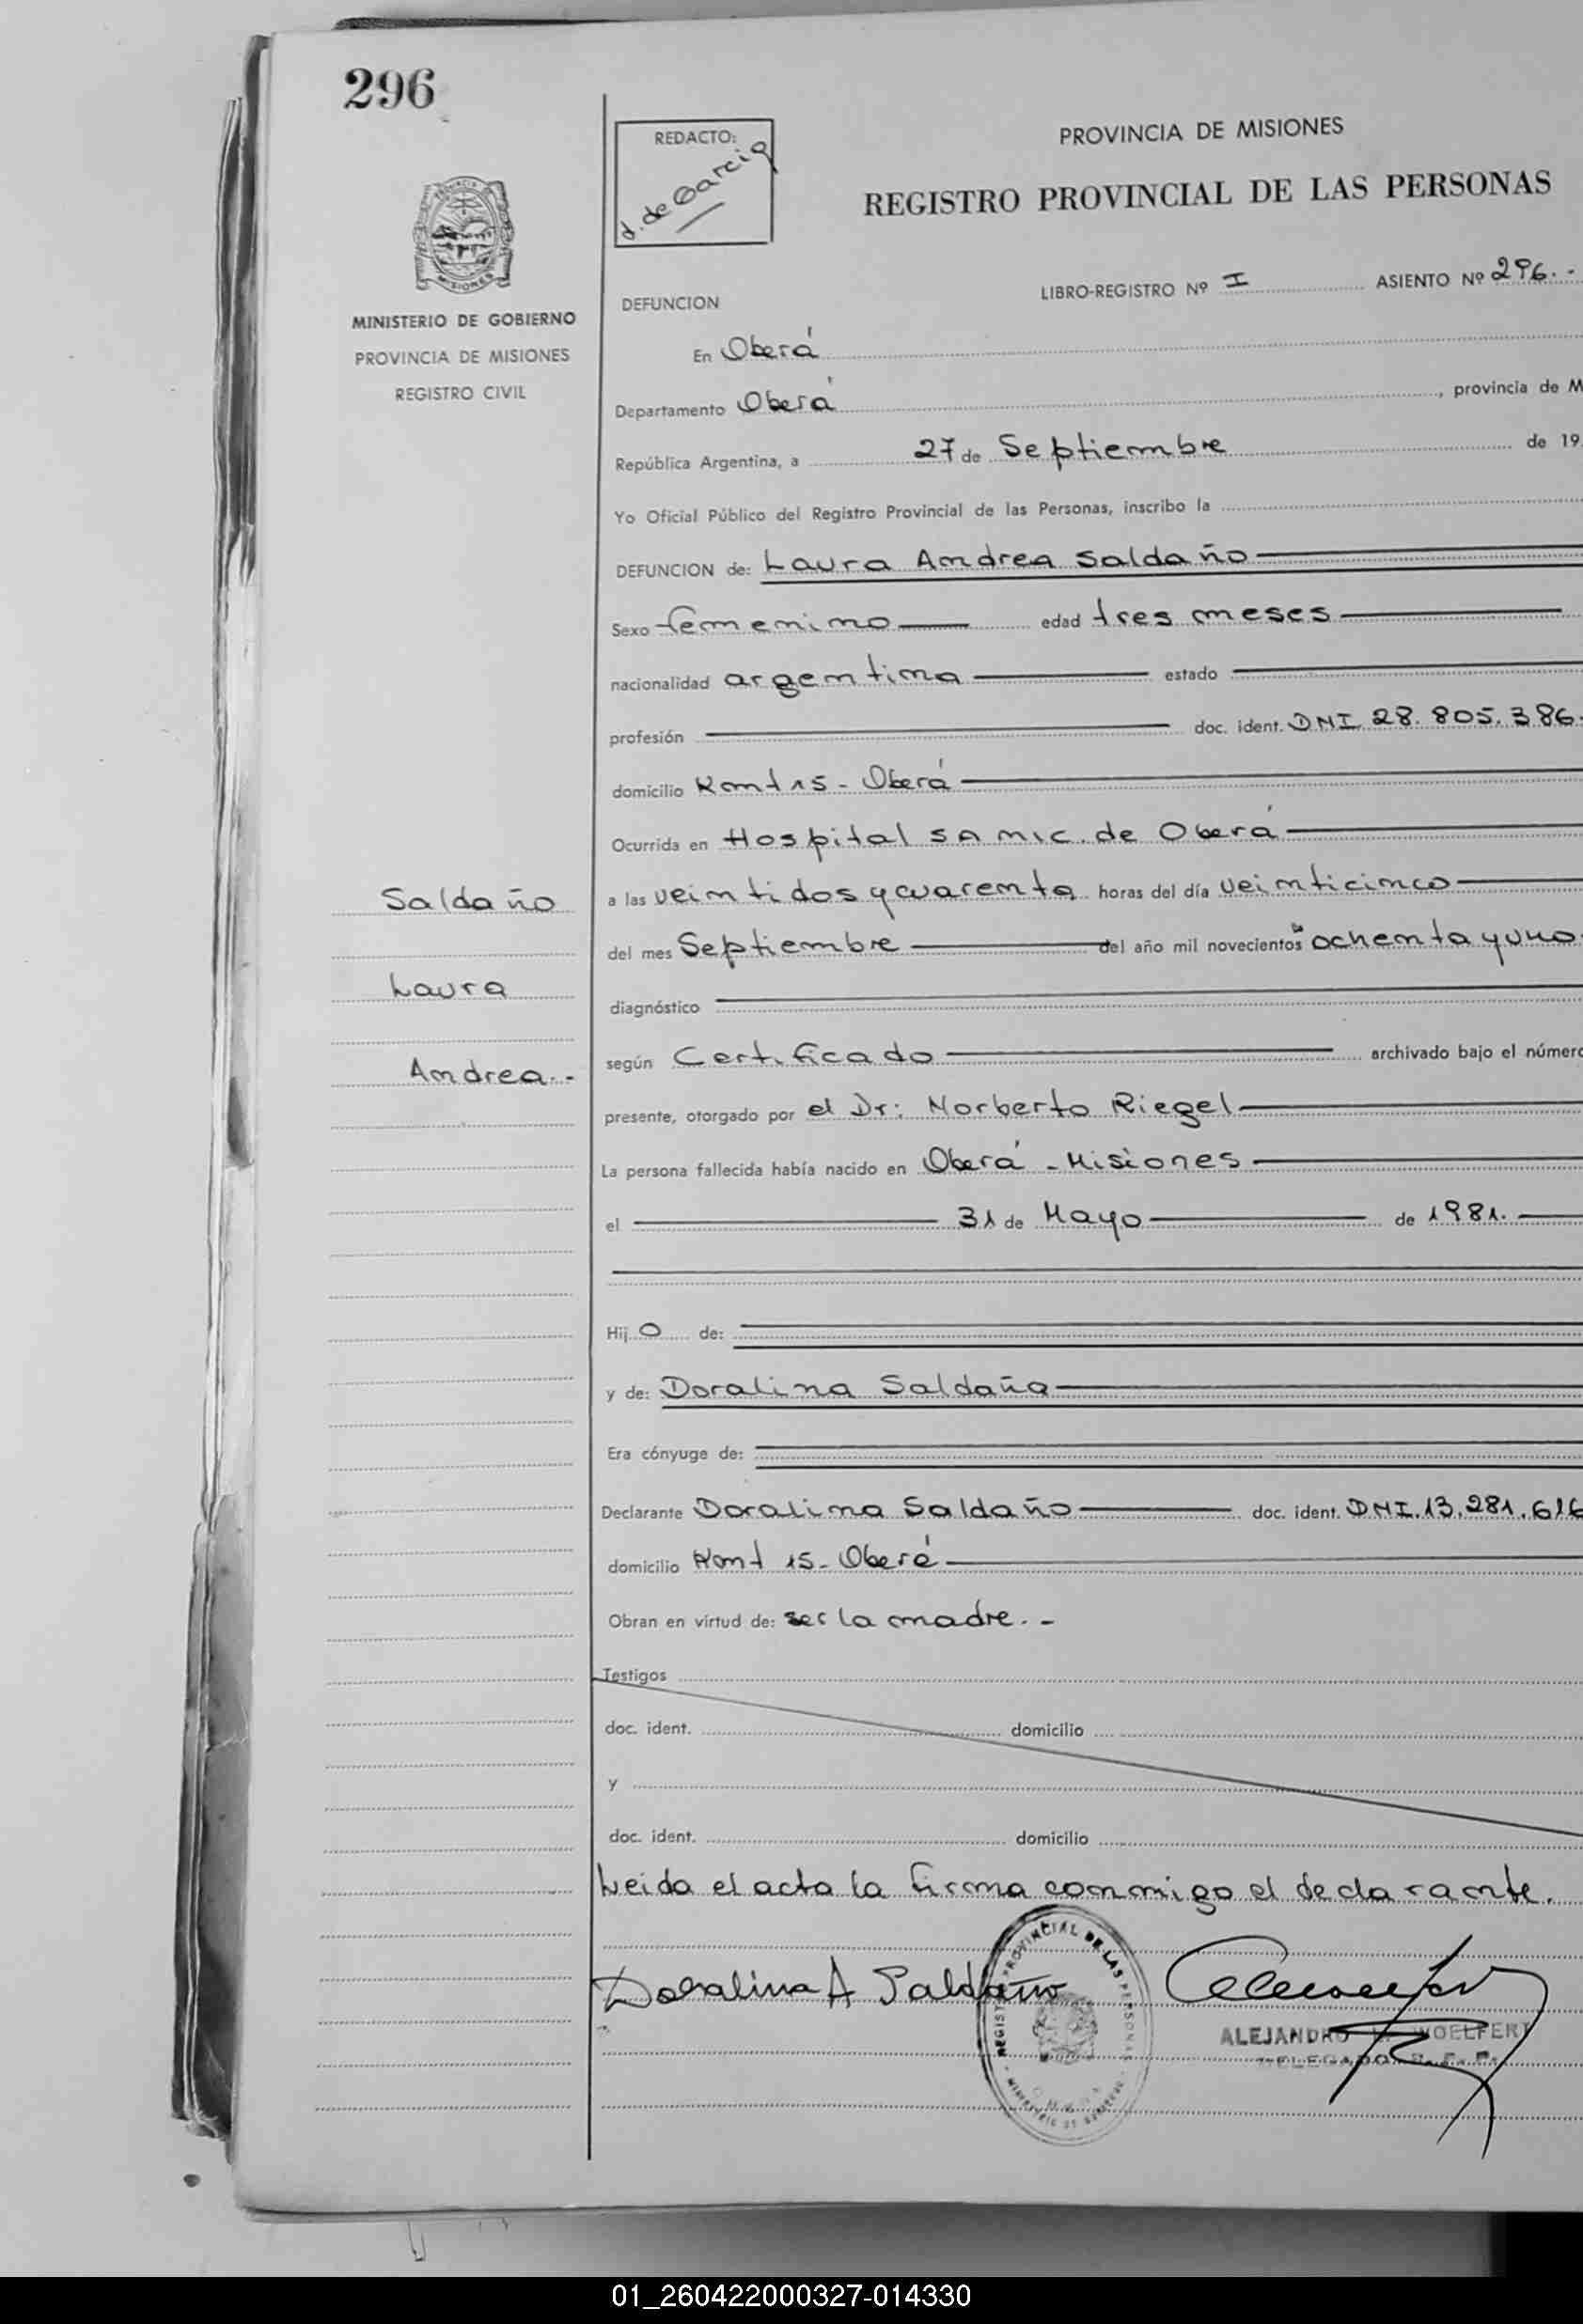 296
REDACTO:
d. de Garcia
PROVINCIA DE MISIONES
REGISTRO PROVINCIAL DE LAS PERSONAS
MISIONES
MINISTERIO DE GOBIERNO
PROVINCIA DE MISIONES
REGISTRO CIVIL
DEFUNCION
LIBRO-REGISTRO Nº I ASIENTO Nº 296.-
En Oberá
Departamento Oberá , provincia de M
República Argentina, a 27 de Septiembre de 19
Yo Oficial Público del Registro Provincial de las Personas, inscribo la
DEFUNCION de: Laura Andrea Saldaño
Sexo femenino edad tres meses
nacionalidad argentina estado
profesión doc. ident. DNI. 28.805.386.
domicilio Kmt 15 - Oberá
Ocurrida en Hospital SAMIC. de Oberá
a las veintidos y cuarenta horas del día veinticinco
del mes Septiembre del año mil novecientos ochenta y uno
diagnóstico
según Certificado archivado bajo el número
presente, otorgado por el Dr: Norberto Riegel
La persona fallecida había nacido en Oberá - Misiones
el 31 de Mayo de 1981.
Saldaño
Laura
Andrea.-
Hijo de:
y de: Doralina Saldaña
Era cónyuge de:
Declarante Doralina Saldaño doc. ident. DNI. 13.281.616
domicilio Kmt 15 - Oberá
Obran en virtud de: ser la madre.-
Testigos
doc. ident. domicilio
y
doc. ident. domicilio
Leida el acta la firma conmigo el declarante.
Doralina A Saldaño
REGISTRO PROVINCIAL DE LAS PERSONAS
ALEJANDRO WOELFERT
DELEGADO R. P. P.
01_260422000327-014330